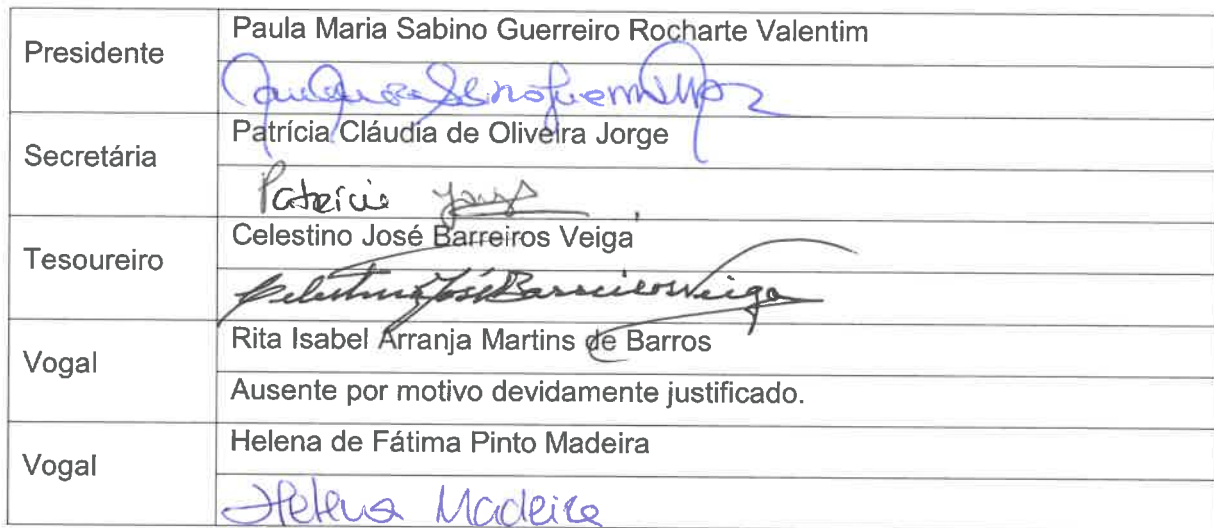 Presidente
Paula Maria Sabino Guerreiro Rocharte Valentim
Secretária
Patrícia Cláudia de Oliveira Jorge
Patrícia Jorge
Tesoureiro
Celestino José Barreiros Veiga
Celestino José Barreiros Veiga
Vogal
Rita Isabel Arranja Martins de Barros
Ausente por motivo devidamente justificado.
Vogal
Helena de Fátima Pinto Madeira
Helena Madeira